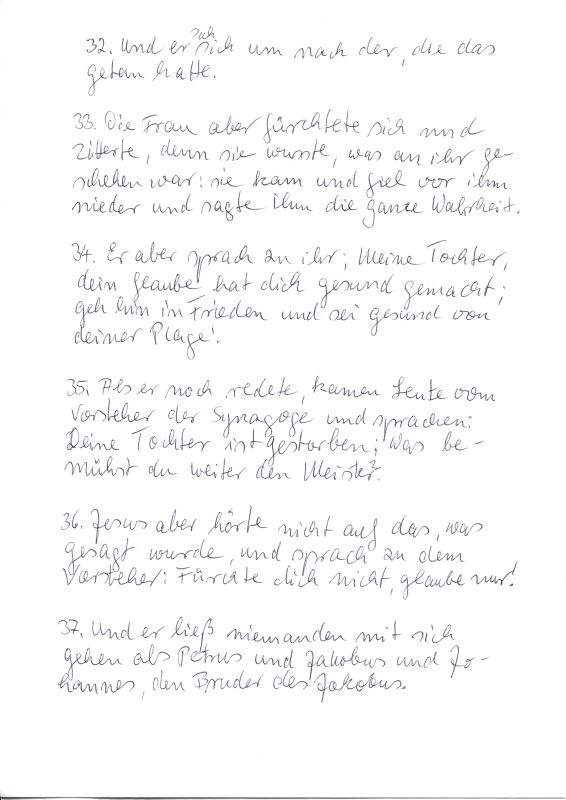 32. Und er sah sich um nach der, die das
getan hatte.
33. Die Frau aber fürchtete sich und
zitterte, denn sie wusste, was an ihr ge-
schehen war: sie kam und fiel vor ihm
nieder und sagte ihm die ganze Wahrheit.
34. Er aber sprach zu ihr; Meine Tochter,
dein Glaube hat dich gesund gemacht;
geh hin in Frieden und sei gesund von
deiner Plage!
35. Als er noch redete, kamen Leute vom
Vorsteher der Synagoge und sprachen:
Deine Tochter ist gestorben; Was be-
mühst du weiter den Meister?
36. Jesus aber hörte nicht auf das, was
gesagt wurde, und sprach zu dem
Vorsteher: Fürchte dich nicht, glaube nur!
37. Und er ließ niemanden mit sich
gehen als Petrus und Jakobus und Jo-
hannes, den Bruder des Jakobus.